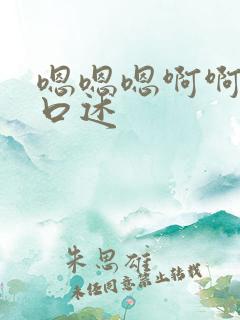 嗯嗯嗯啊啊
口述
朱思雄
未经同意禁止转载